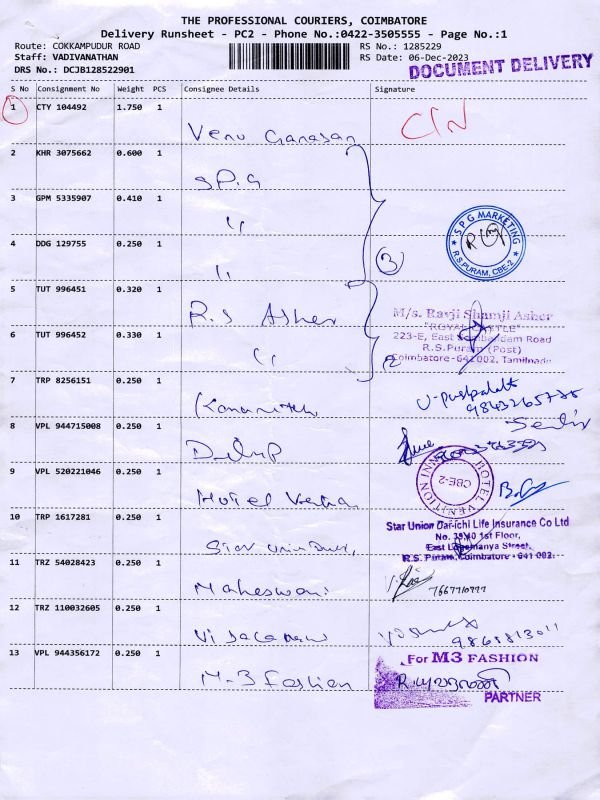 THE PROFESSIONAL COURIERS, COIMBATORE
Delivery Runsheet - PC2 - Phone No.:0422-3505555 - Page No.:1
Route: COKKAMPUDUR ROAD
Staff: VADIVANATHAN
DRS No.: DCJB128522901
RS No.: 1285229
RS Date: 06-Dec-2023
DOCUMENT DELIVERY
S No Consignment No Weight PCS Consignee Details Signature
1 CTY 104492 1.750 1 Venu Ganasan
2 KHR 3075662 0.600 1 SPG
3 GPM 5335907 0.410 1 "
4 DDG 129755 0.250 1 "
3
SPG MARKETING
R.S.PURAM, CBE-2
5 TUT 996451 0.320 1 R.S Asher
6 TUT 996452 0.330 1 "
2
M/s. Ravji Shamji Asher
"ROYAL CASTLE"
223-E, East Sambandam Road
R.S.Puram (Post)
Coimbatore-641002, Tamilnadu
7 TRP 8256151 0.250 1
8 VPL 944715008 0.250 1 Dilip
9 VPL 520221046 0.250 1 Hotel
HOTEL VENITION INN
CBE-2
10 TRP 1617281 0.250 1 Star Union
Star Union Dai-ichi Life Insurance Co Ltd
1st Floor,
East Lokamanya Street,
R.S. Puram, Coimbatore - 641 002.
11 TRZ 54028423 0.250 1 Maheswari
7667710777
12 TRZ 110032605 0.250 1
13 VPL 944356172 0.250 1 M-3 Fashion
For M3 FASHION
PARTNER